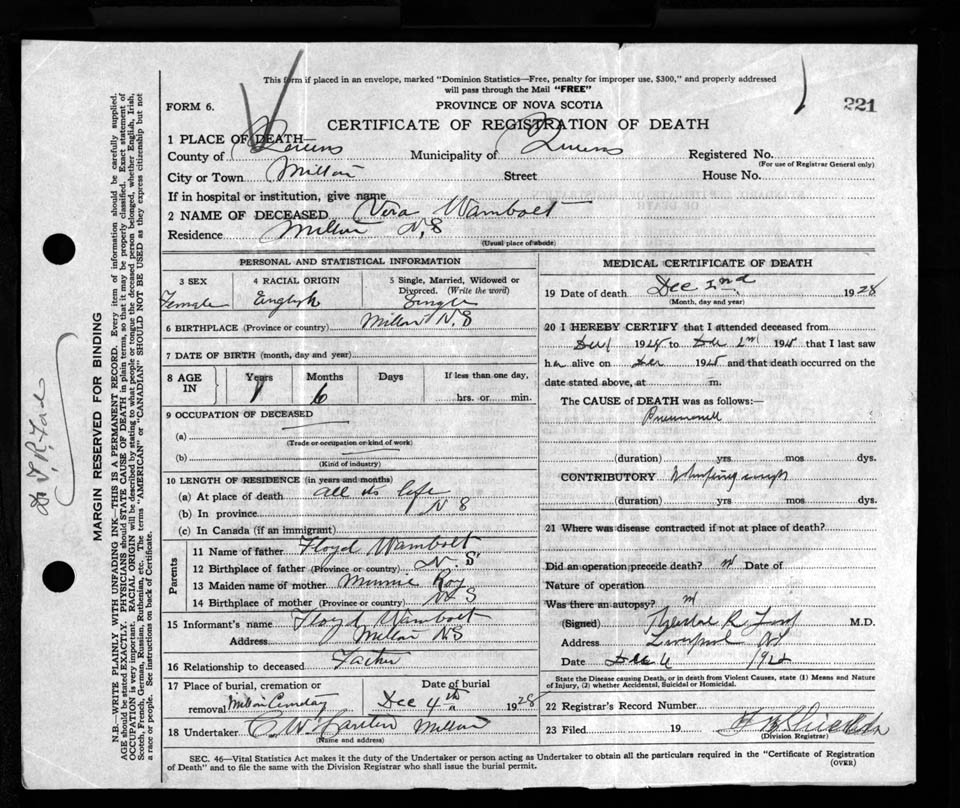 This form if placed in an envelope, marked "Dominion Statistics—Free, penalty for improper use, $300," and properly addressed
will pass through the Mail "FREE"
FORM 6.
PROVINCE OF NOVA SCOTIA
221
CERTIFICATE OF REGISTRATION OF DEATH
1 PLACE OF DEATH—
County of Queens Municipality of Queens Registered No.
(For use of Registrar General only)
City or Town Milton Street House No.
If in hospital or institution, give name
2 NAME OF DECEASED Vera Wambolt
Residence Milton N,S
(Usual place of abode)
PERSONAL AND STATISTICAL INFORMATION
3 SEX 4 RACIAL ORIGIN 5 Single, Married, Widowed or
Divorced. (Write the word)
Female English Single
6 BIRTHPLACE (Province or country) Milton N,S
7 DATE OF BIRTH (month, day and year)
8 AGE IN Years Months Days If less than one day,
1 6 hrs. or min.
9 OCCUPATION OF DECEASED
(a)
(Trade or occupation or kind of work)
(b)
(Kind of industry)
10 LENGTH OF RESIDENCE (in years and months)
(a) At place of death all its life
(b) In province N S
(c) In Canada (if an immigrant)
Parents
11 Name of father Floyd Wambolt
12 Birthplace of father (Province or country) N. S
13 Maiden name of mother Minnie Roy
14 Birthplace of mother (Province or country) N S
15 Informant's name Floyd Wambolt
Address Milton NS
16 Relationship to deceased Father
17 Place of burial, cremation or Date of burial
removal Milton Cemetery Dec 4th 1928
18 Undertaker C. W. Milton
(Name and address)
MEDICAL CERTIFICATE OF DEATH
19 Date of death Dec 2nd 1928
(Month, day and year)
20 I HEREBY CERTIFY that I attended deceased from
Dec 1 1928 to Dec 2nd 1928 that I last saw
her alive on Dec 1928 and that death occurred on the
date stated above, at m.
The CAUSE of DEATH was as follows:—
Pneumonia
(duration) yrs mos dys.
CONTRIBUTORY Whooping cough
(duration) yrs mos dys.
21 Where was disease contracted if not at place of death?
Did an operation precede death? no Date of
Nature of operation
Was there an autopsy? no
(Signed) R. Ford M.D.
Address Liverpool NS
Date Dec 1928
State the Disease causing Death, or in death from Violent Causes, state (1) Means and Nature
of Injury, (2) whether Accidental, Suicidal or Homicidal.
22 Registrar's Record Number
23 Filed 19
(Division Registrar)
SEC. 46—Vital Statistics Act makes it the duty of the Undertaker or person acting as Undertaker to obtain all the particulars required in the "Certificate of Registration
of Death" and to file the same with the Division Registrar who shall issue the burial permit.
(OVER)
Dr F, R, Ford
MARGIN RESERVED FOR BINDING
N.B.—WRITE PLAINLY WITH UNFADING INK—THIS IS A PERMANENT RECORD. Every item of information should be carefully supplied.
AGE should be stated EXACTLY. PHYSICIANS should STATE CAUSE OF DEATH in plain terms, so that it may be properly classified. Exact statement of
OCCUPATION is very important. RACIAL ORIGIN will be described by stating to what people or tongue the deceased person belonged, whether English, Irish,
Scotch, French, German, Russian, Ruthenian, etc. The terms "AMERICAN" or "CANADIAN" SHOULD NOT BE USED as they express citizenship but not
a race or people. See instructions on back of Certificate.